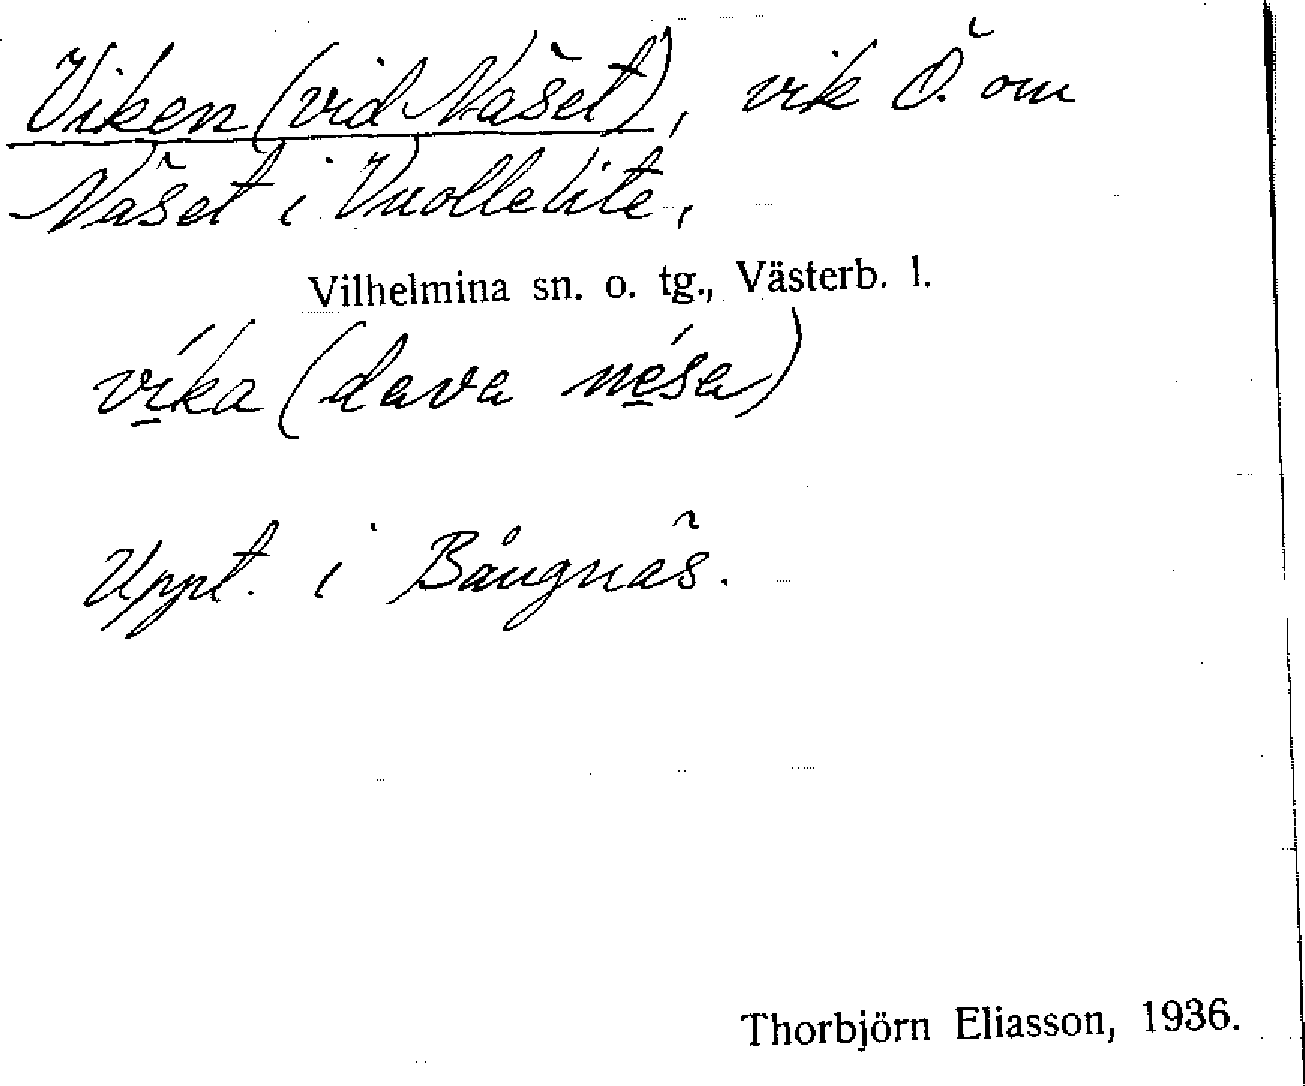 Viken (vid Näset), vik Ö. om
Näset i Vuollelite,
Vilhelmina sn. o. tg., Västerb. l.
víka (dava nésa)
Uppt. i Bångnäs.
Thorbjörn Eliasson, 1936.